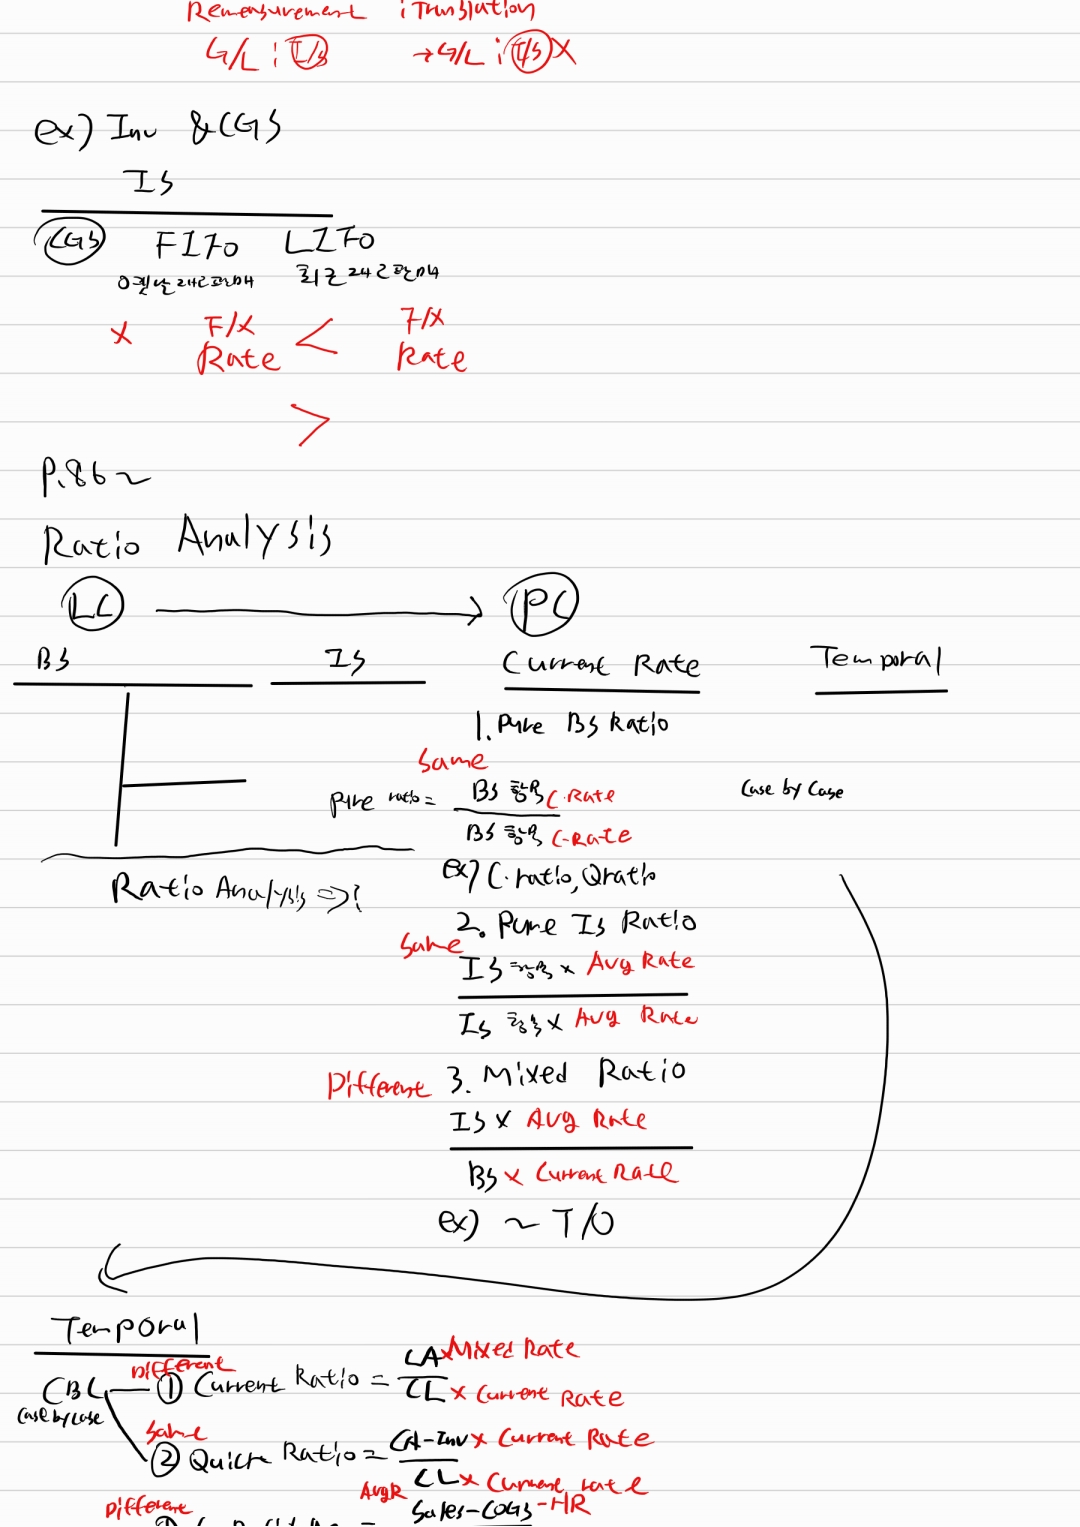 Remeasurement : Translation
G/L : I/S → G/L : I/S X
ex) Inv & CGS
IS
CGS FIFO LIFO
옛날 재고 판매 최근 재고 판매
x F/X Rate < F/X Rate
>
P.86~
Ratio Analysis
LC → PC
BS IS Current Rate Temporal
1. Pure BS Ratio
Same
Pure ratio = BS 항목 C.Rate
BS 항목 C-Rate
Case by Case
ex) C.ratio, Qratio
Ratio Analysis =>?
2. Pure IS Ratio
Same
IS 항목 x Avg Rate
IS 항목 x Avg Rate
Different 3. Mixed Ratio
IS x Avg Rate
BS x Current Rate
ex) ~ T/O
Temporal
CBC
Case by case
Different ① Current Ratio = CA x Mixed Rate
CL x Current Rate
Same ② Quick Ratio = CA-Inv x Current Rate
CL x Current rate
Different AvgR Sales-COGS-HR